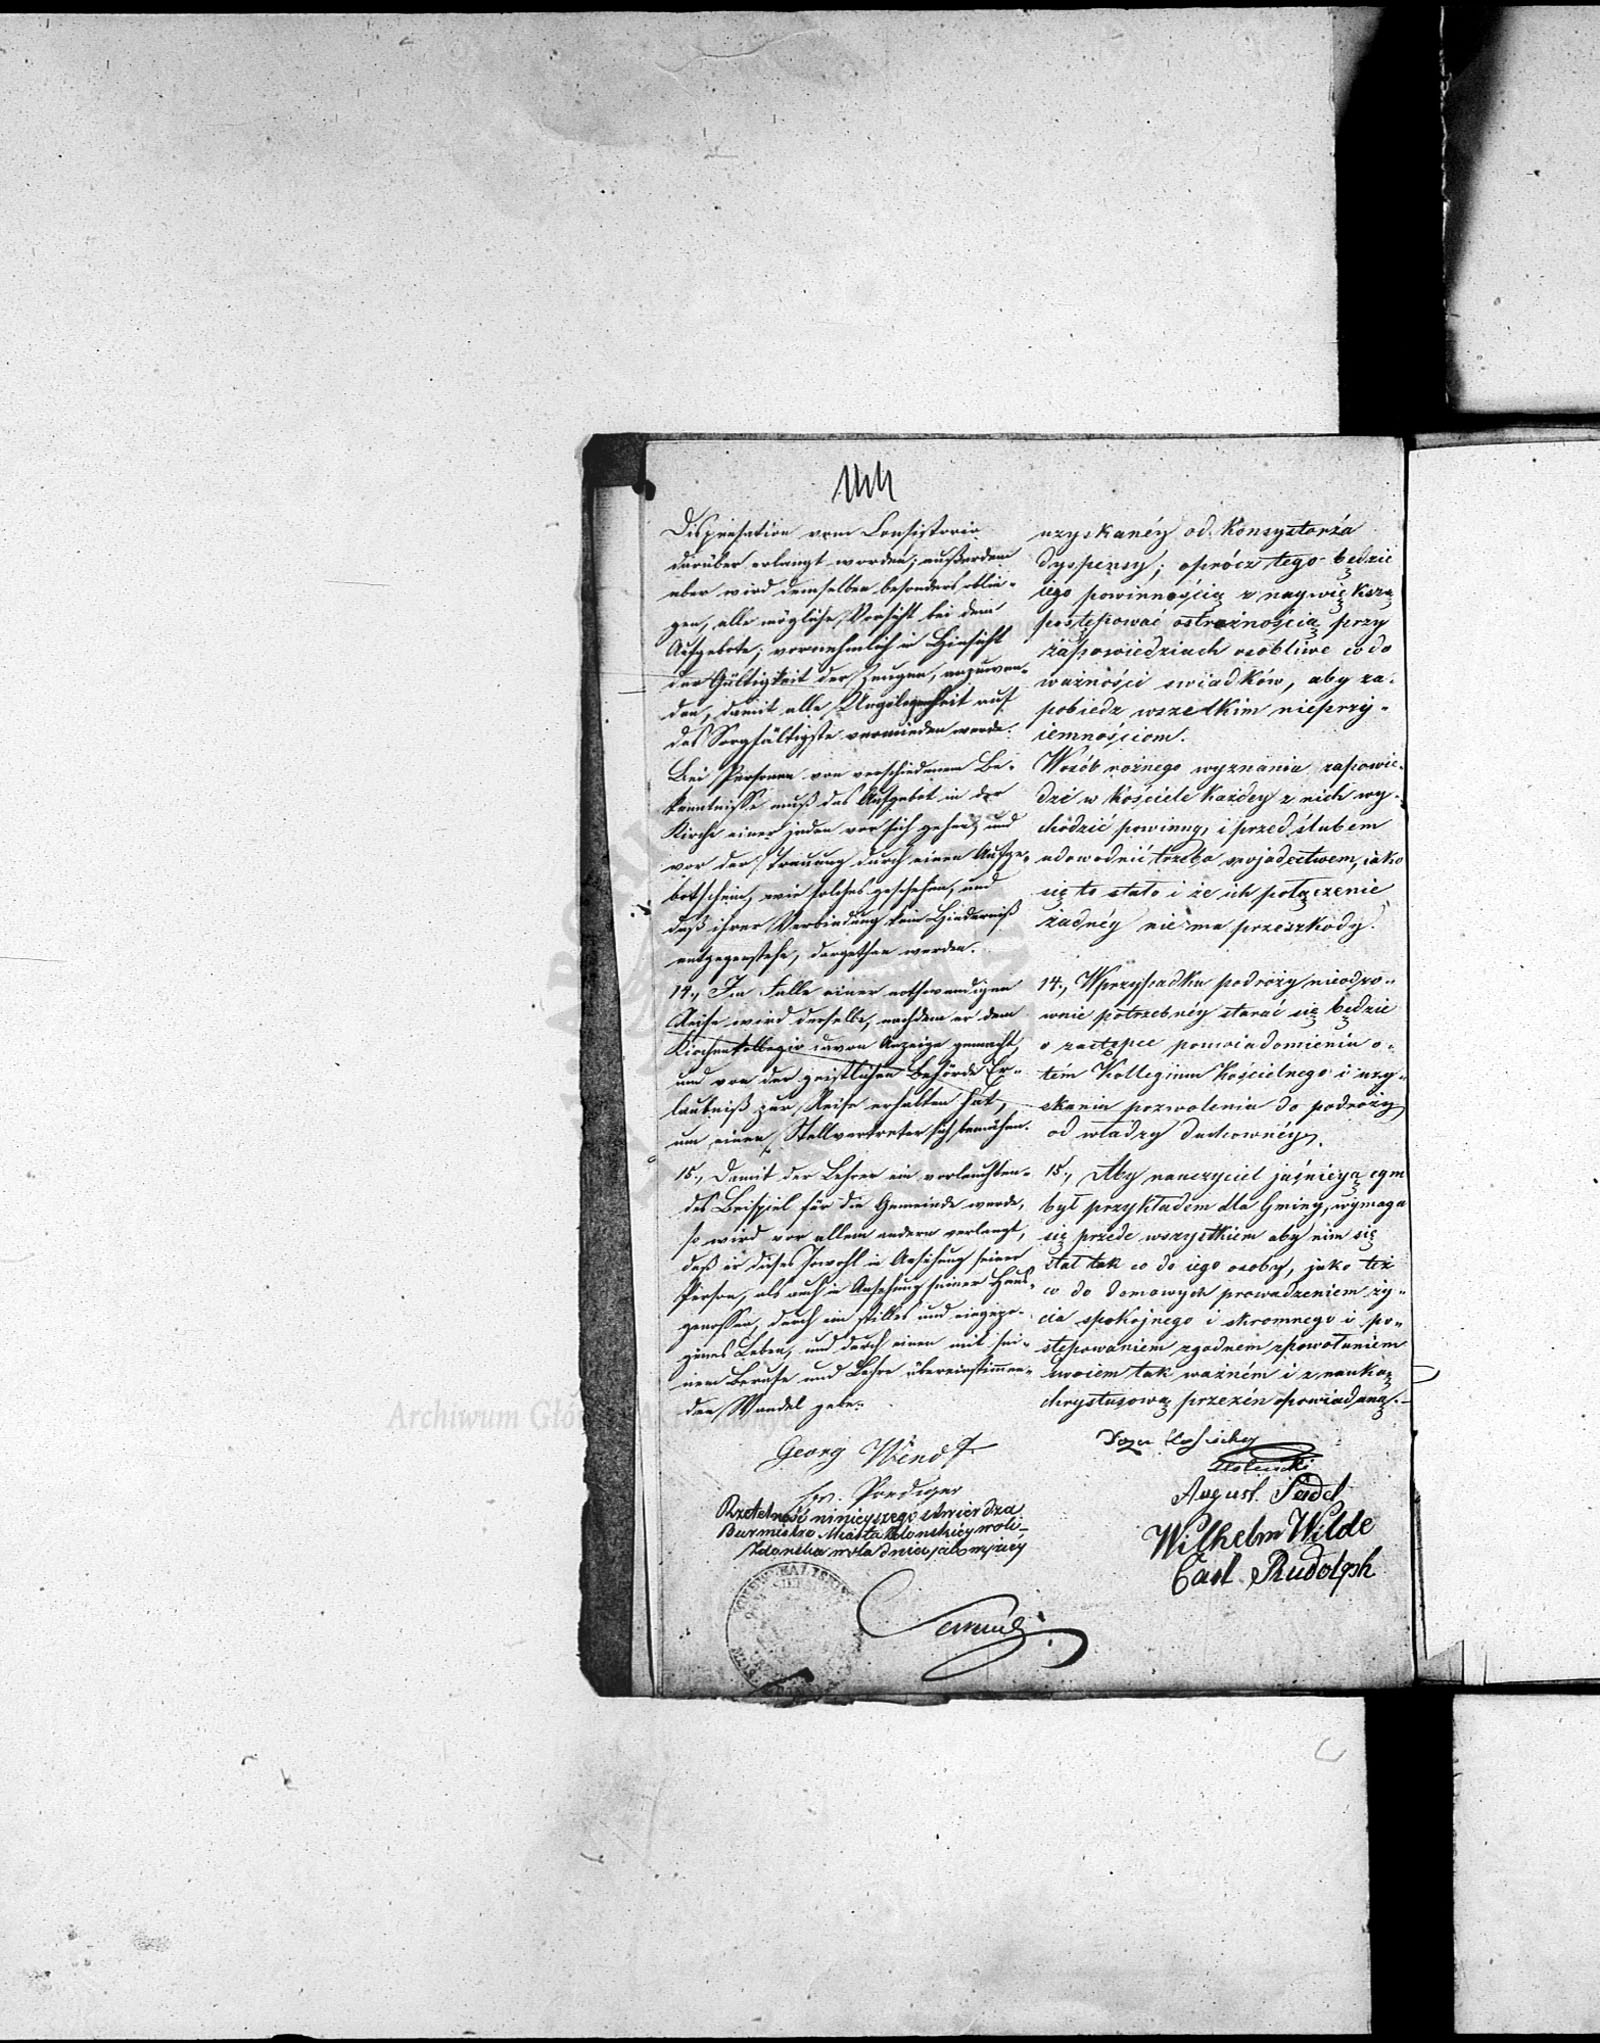 144
Dispensation vom Consistorio
darüber erlangt worden; außerdem
aber wird demselben besonders oblie-
gen, alle mögliche Vorsicht bei dem
Aufgebote; vornehmlich in Hinsicht
der Gültigkeit der Zeugen, anzuwen-
den, damit alle Ungelegenheit auf
das Sorgfältigste vermieden werde.
Bei Personen von verschiedenem Be-
kenntnisse muß das Aufgebot in der
Kirche einer jeden vor sich gehen, und
vor der Trauung durch einen Aufge-
botschein, wie solches geschehen, und
daß ihrer Verbindung kein Hinderniß
entgegenstehe, dargethan werden.
14., Im Falle einer nothwendigen
Reise wird derselbe, nachdem er dem
Kirchenkollegio davon Anzeige gemacht,
und von der geistlichen Behörde Er-
laubniß zur Reise erhalten hat,
um einen Stellvertreter sich bemühen.
15., Damit der Lehrer ein vorleuchten-
des Beispiel für die Gemeinde werde,
so wird vor allem andern verlangt,
daß er dieses sowohl in Ansehung seiner
Person, als auch in Ansehung seiner Haus-
genossen, durch ein stilles und eingezo-
genes Leben, und durch einen mit sei-
nem Berufe und Lehre übereinstimmen-
den Wandel gebe.
uzyskanéy od Konsystorża
dyspensy; oprócz tego będzie
iego powinnością z naywiększą
postępować ostrożnością przy
zapowiedziach osobliwe co do
ważności swiadków, aby za-
pobiedz wszelkim nieprzy-
iemnościom.
W osób rożnego wyznania zapowie-
dzi w kościele każdey z nich wy-
chodzić powinny, i przed ślubem
udowodnić trzeba swiadectwem, iako
się to stało i że ich połączenie
żadnéy nie ma przeszkody.
14., W przypadku podróży nieodzo-
wnie potrzebnéy starać się będzie
o zastępce powiadomieniu o-
tém Kollegium Kościelnego i uzy-
skaniu pozwolenia do podróży
od władzy duchownéy.
15., Aby nauczyciel jaśnieyącym
był przykładem dla Gminy, wymaga
się przede wszystkiem aby nim się
stał tak co do iego osoby, jako też
co do domowych prowadzeniem ży-
cia spokojnego i skromnego i po-
stępowaniem zgodnem z powołaniem
swoiem tak ważném i z nauką
chrystusową przezén opowiadaną.
Georg Wendt
Prediger
August Seidel
Wilhelm Wilde
Carl Rudolph
Rzetelność ninieyszego stwierdza
Burmistrz Miasta
Archiwum Główne Akt